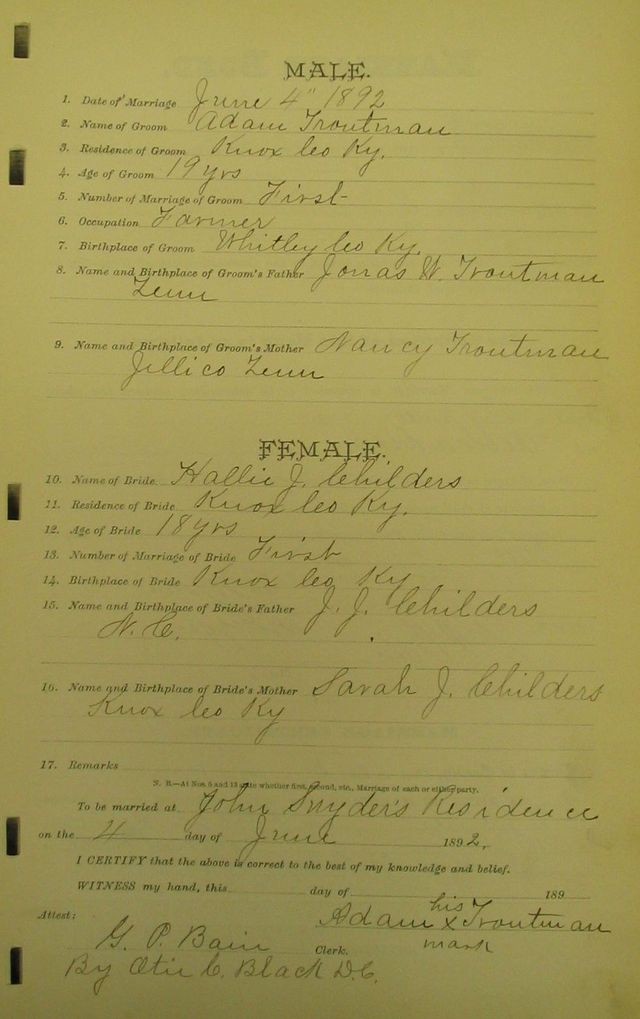 MALE.
1. Date of Marriage June 4" 1892
2. Name of Groom Adam Troutman
3. Residence of Groom Knox Co Ky.
4. Age of Groom 19 yrs
5. Number of Marriage of Groom First
6. Occupation Farmer
7. Birthplace of Groom Whitley Co Ky.
8. Name and Birthplace of Groom's Father Jonas W. Troutman
Tenn
9. Name and Birthplace of Groom's Mother Nancy Troutman
Jellico Tenn
FEMALE.
10. Name of Bride Hallie J. Childers
11. Residence of Bride Knox Co Ky.
12. Age of Bride 18 yrs
13. Number of Marriage of Bride First
14. Birthplace of Bride Knox Co Ky
15. Name and Birthplace of Bride's Father J. J. Childers
N. C.
16. Name and Birthplace of Bride's Mother Sarah J. Childers
Knox Co Ky
17. Remarks
N. B.—At Nos. 5 and 13 state whether first, second, etc., Marriage of each or either party.
To be married at John Snyder's Residence
on the 4 day of June 1892.
I CERTIFY that the above is correct to the best of my knowledge and belief.
WITNESS my hand, this day of 189
his
Attest: Adam x Troutman
mark
G. P. Bain Clerk.
By Otis C. Black D.C.